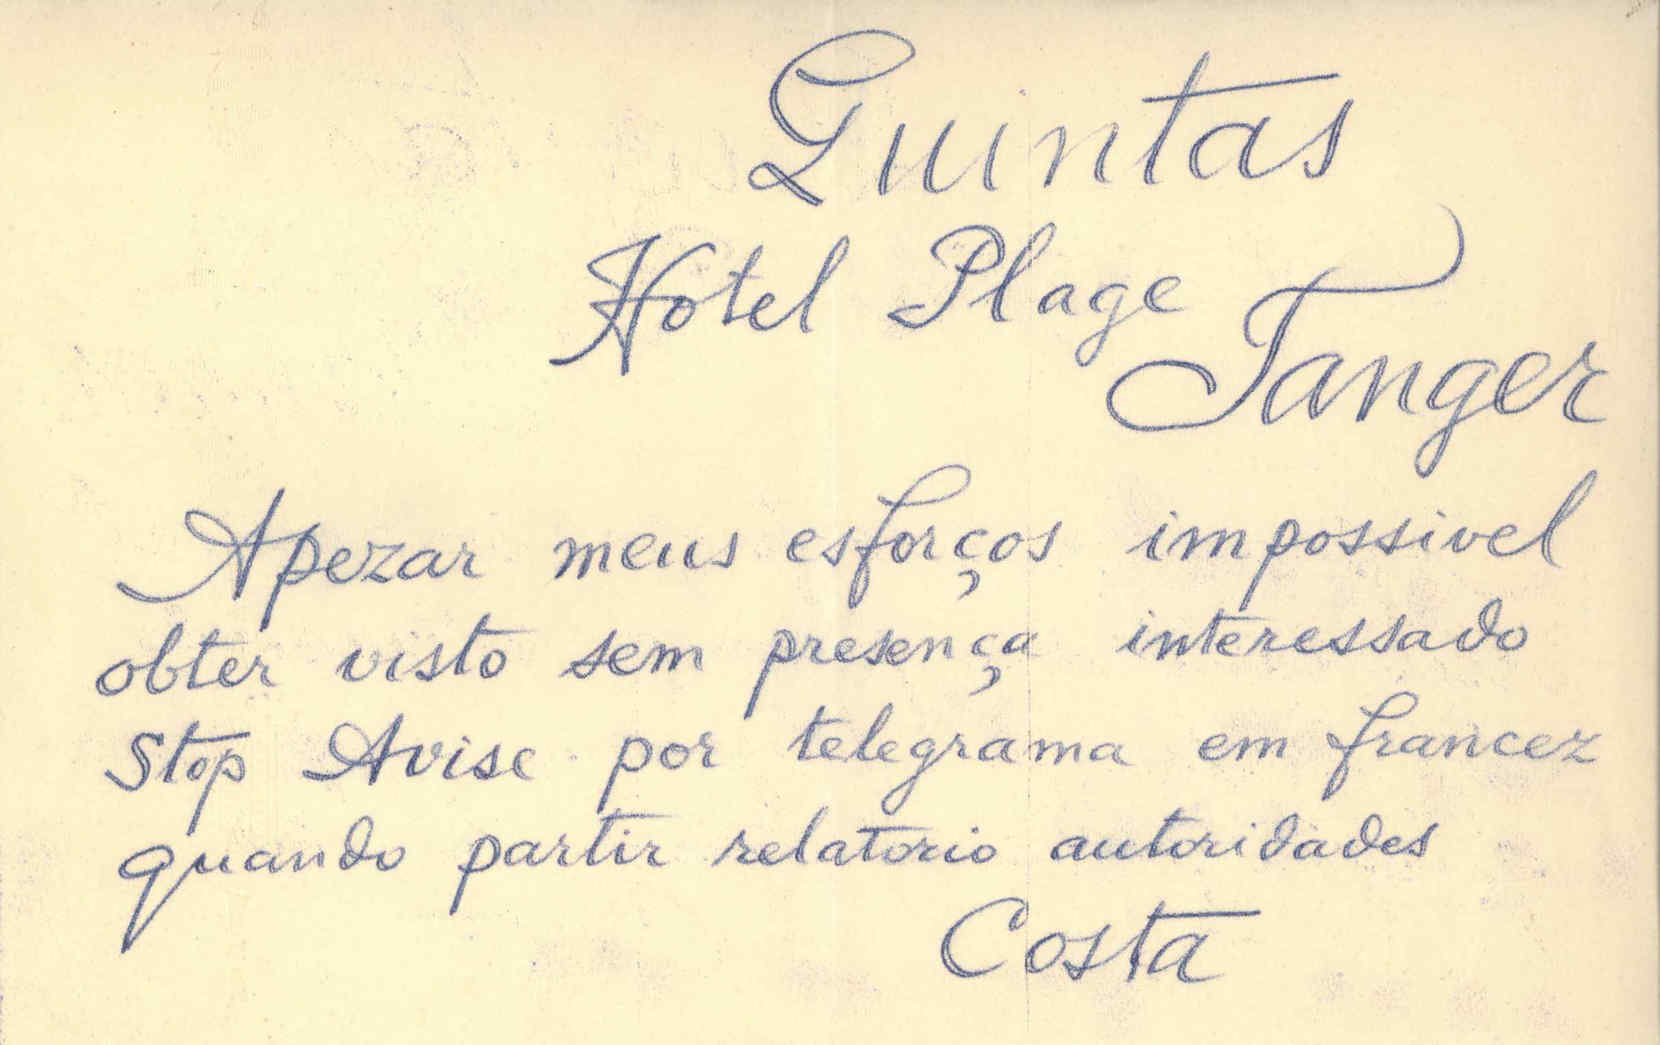 Quintas
Hotel Plage
Tanger
Apezar meus esforços impossivel
obter visto sem presença interessado
Stop Avise por telegrama em francez
quando partir relatorio autoridades
Costa